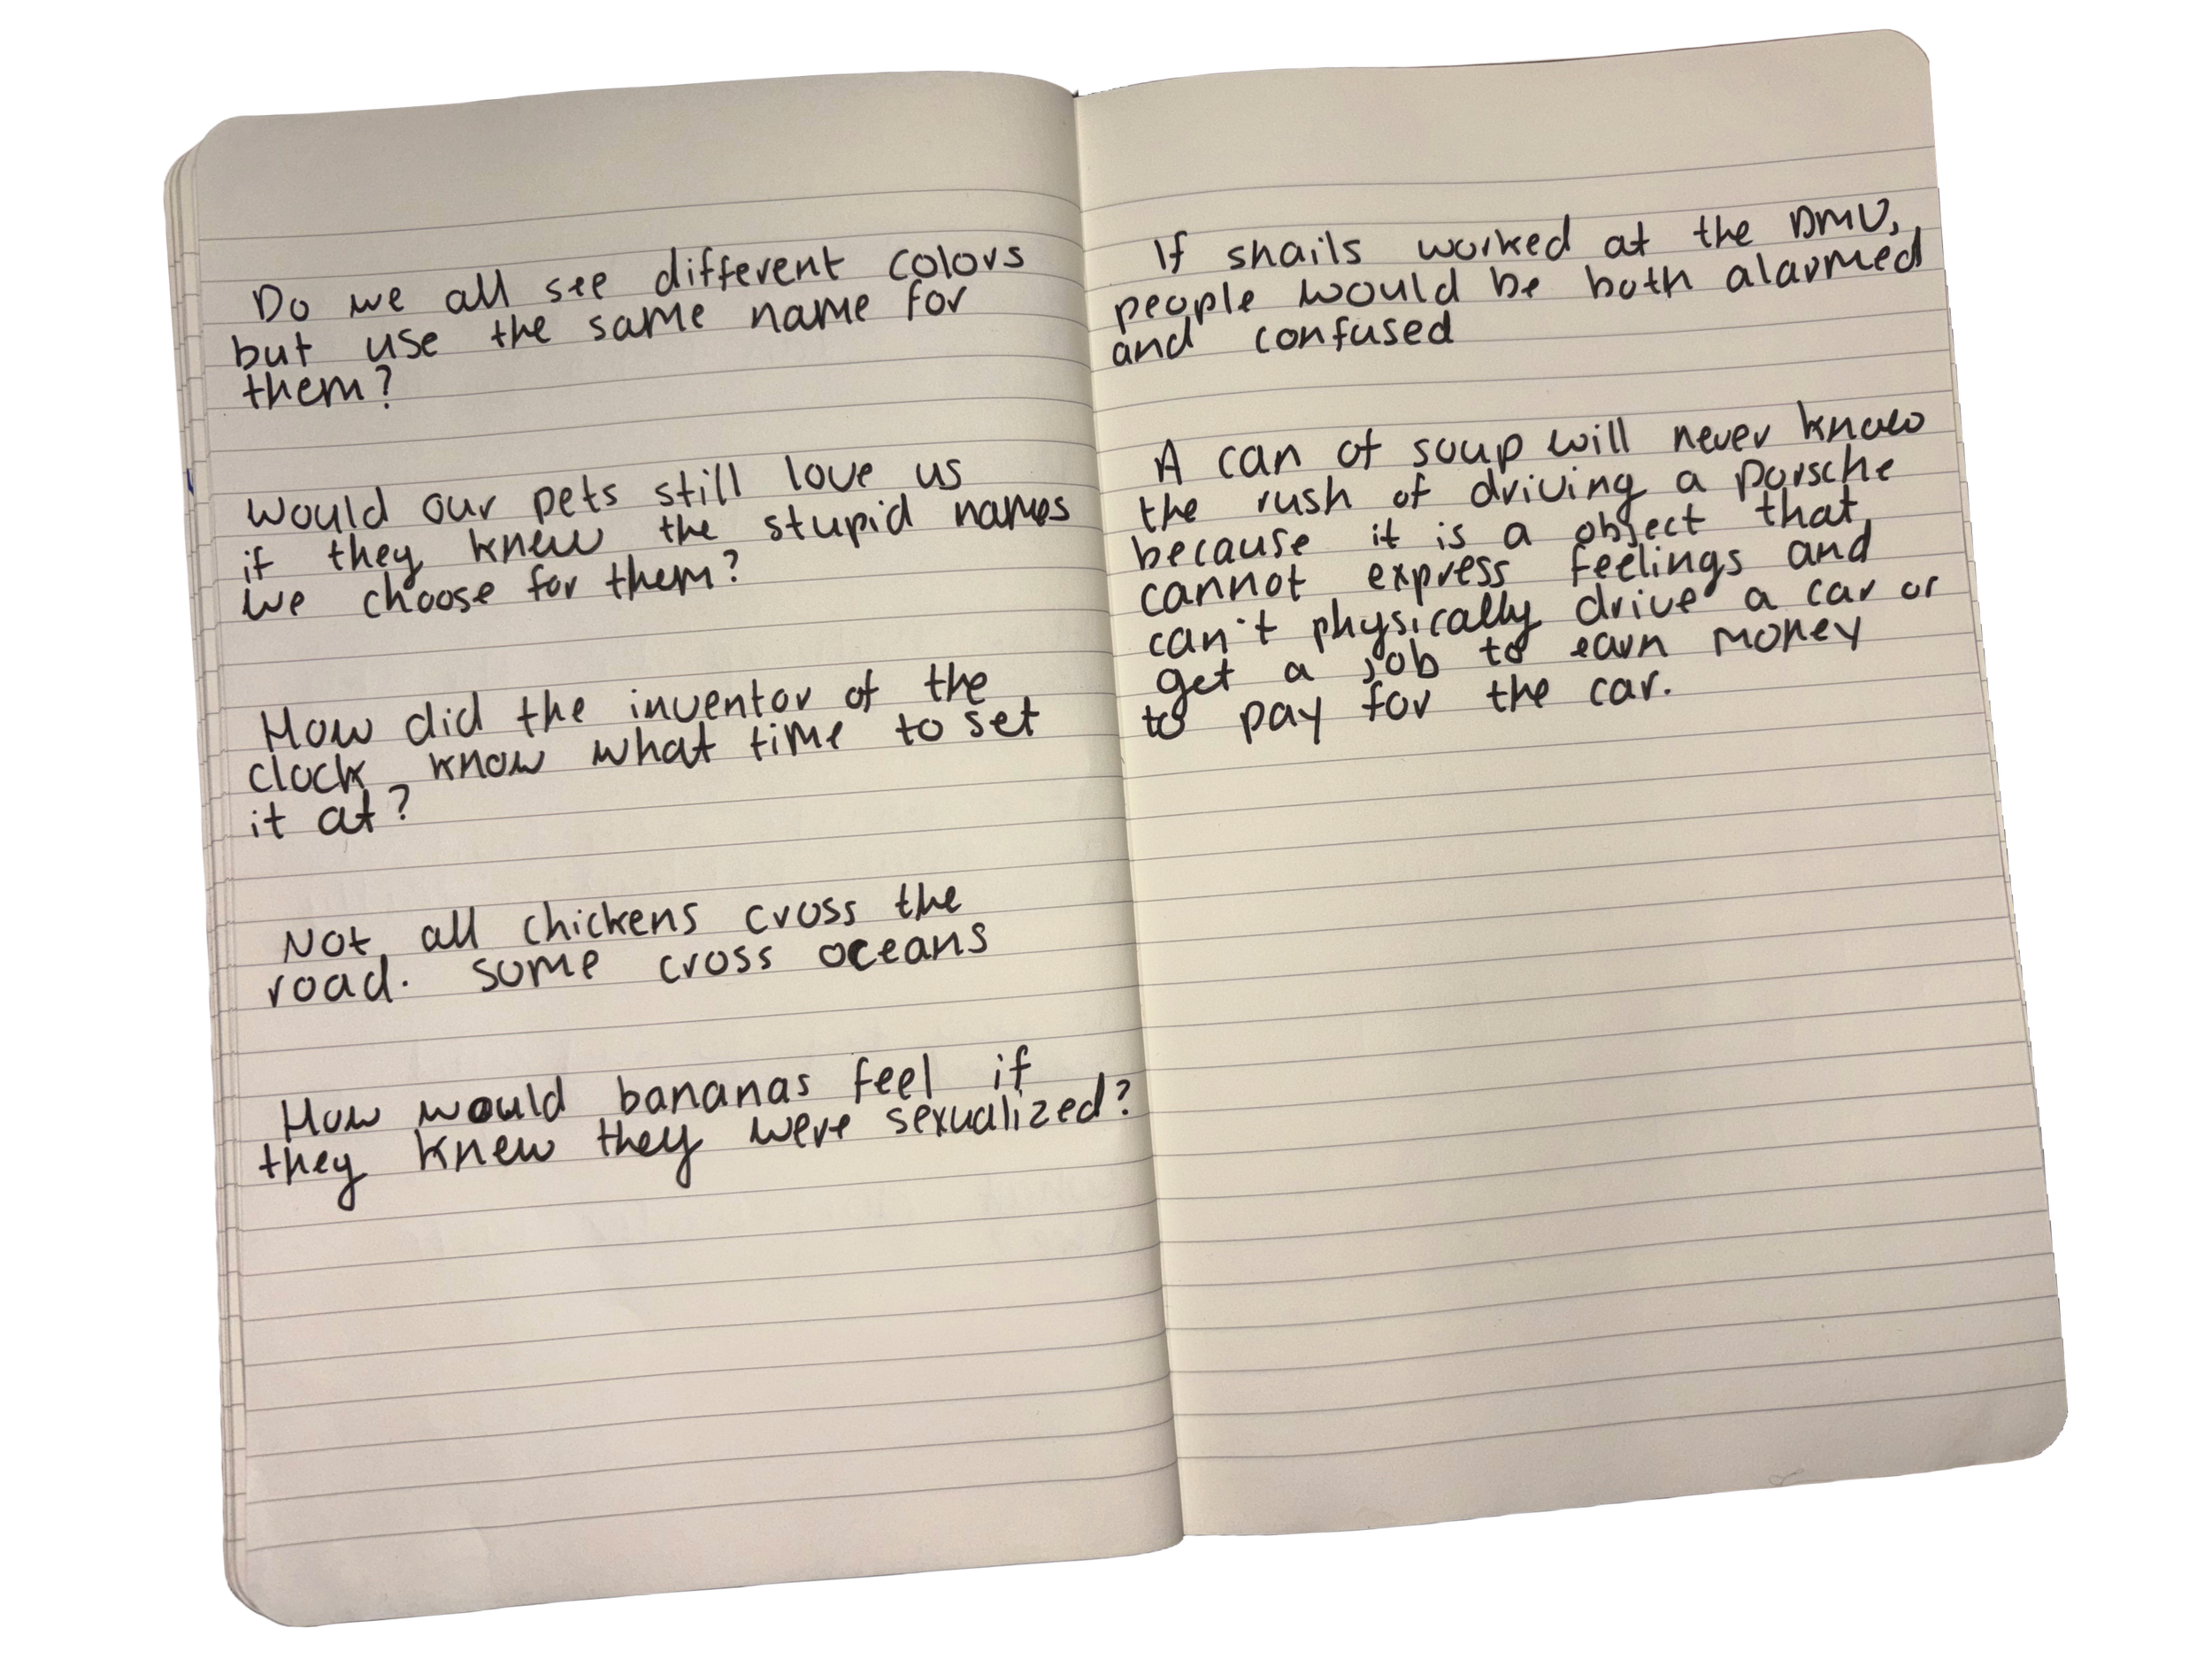 Do we all see different colors
but use the same name for
them?
Would our pets still love us
if they knew the stupid names
we choose for them?
How did the inventor of the
clock know what time to set
it at?
Not all chickens cross the
road. some cross oceans
How would bananas feel if
they knew they were sexualized?
If snails worked at the DMV,
people would be both alarmed
and confused
A can of soup will never know
the rush of driving a porsche
because it is a object that
cannot express feelings and
can't physically drive a car or
get a job to earn money
to pay for the car.